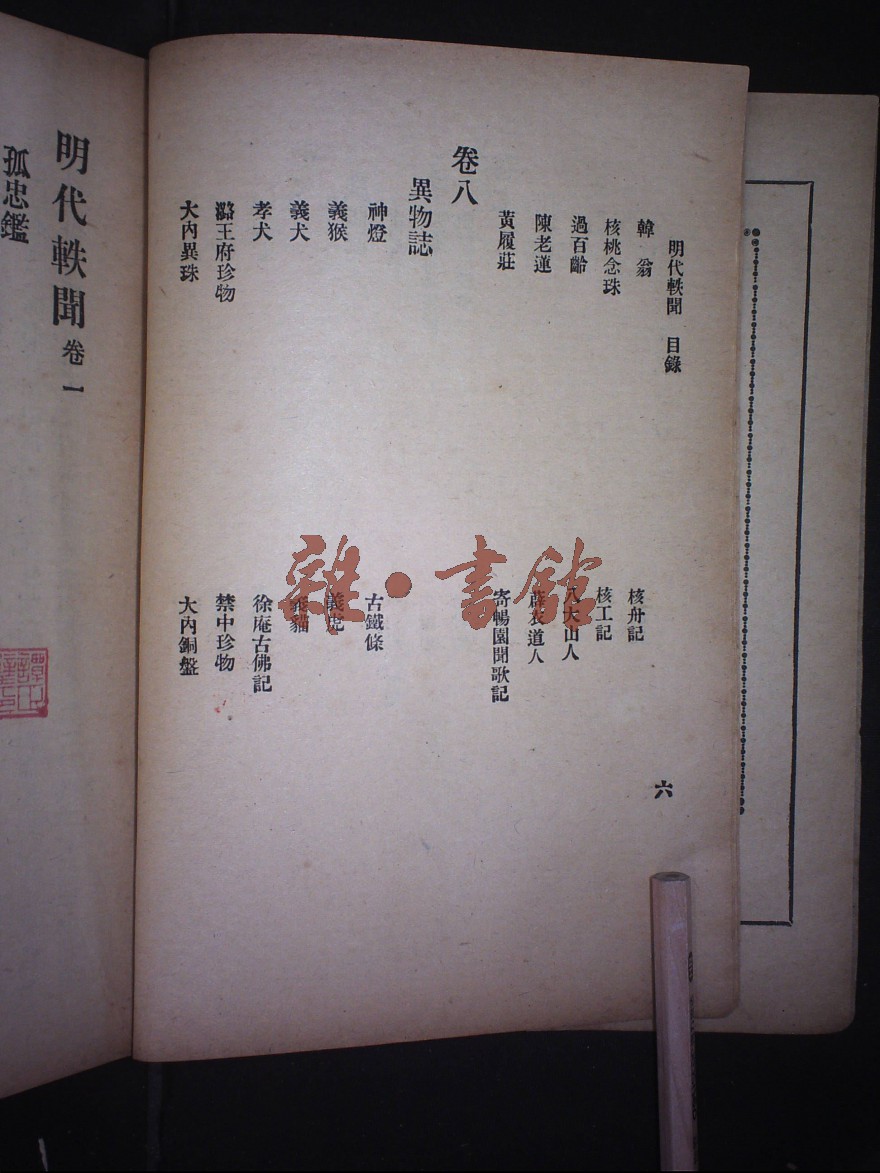 明代軼聞　目錄
六
韓　翁
核舟記
核桃念珠
核工記
過百齡
八大山人
陳老蓮
薜衣道人
黃履莊
寄暢園聞歌記
卷八
異物誌
神燈
古鐵條
義猴
義虎
義犬
義貓
孝犬
徐庵古佛記
潞王府珍物
禁中珍物
大內異珠
大內銅盤
明代軼聞　卷一
孤忠鑑
雜·書館